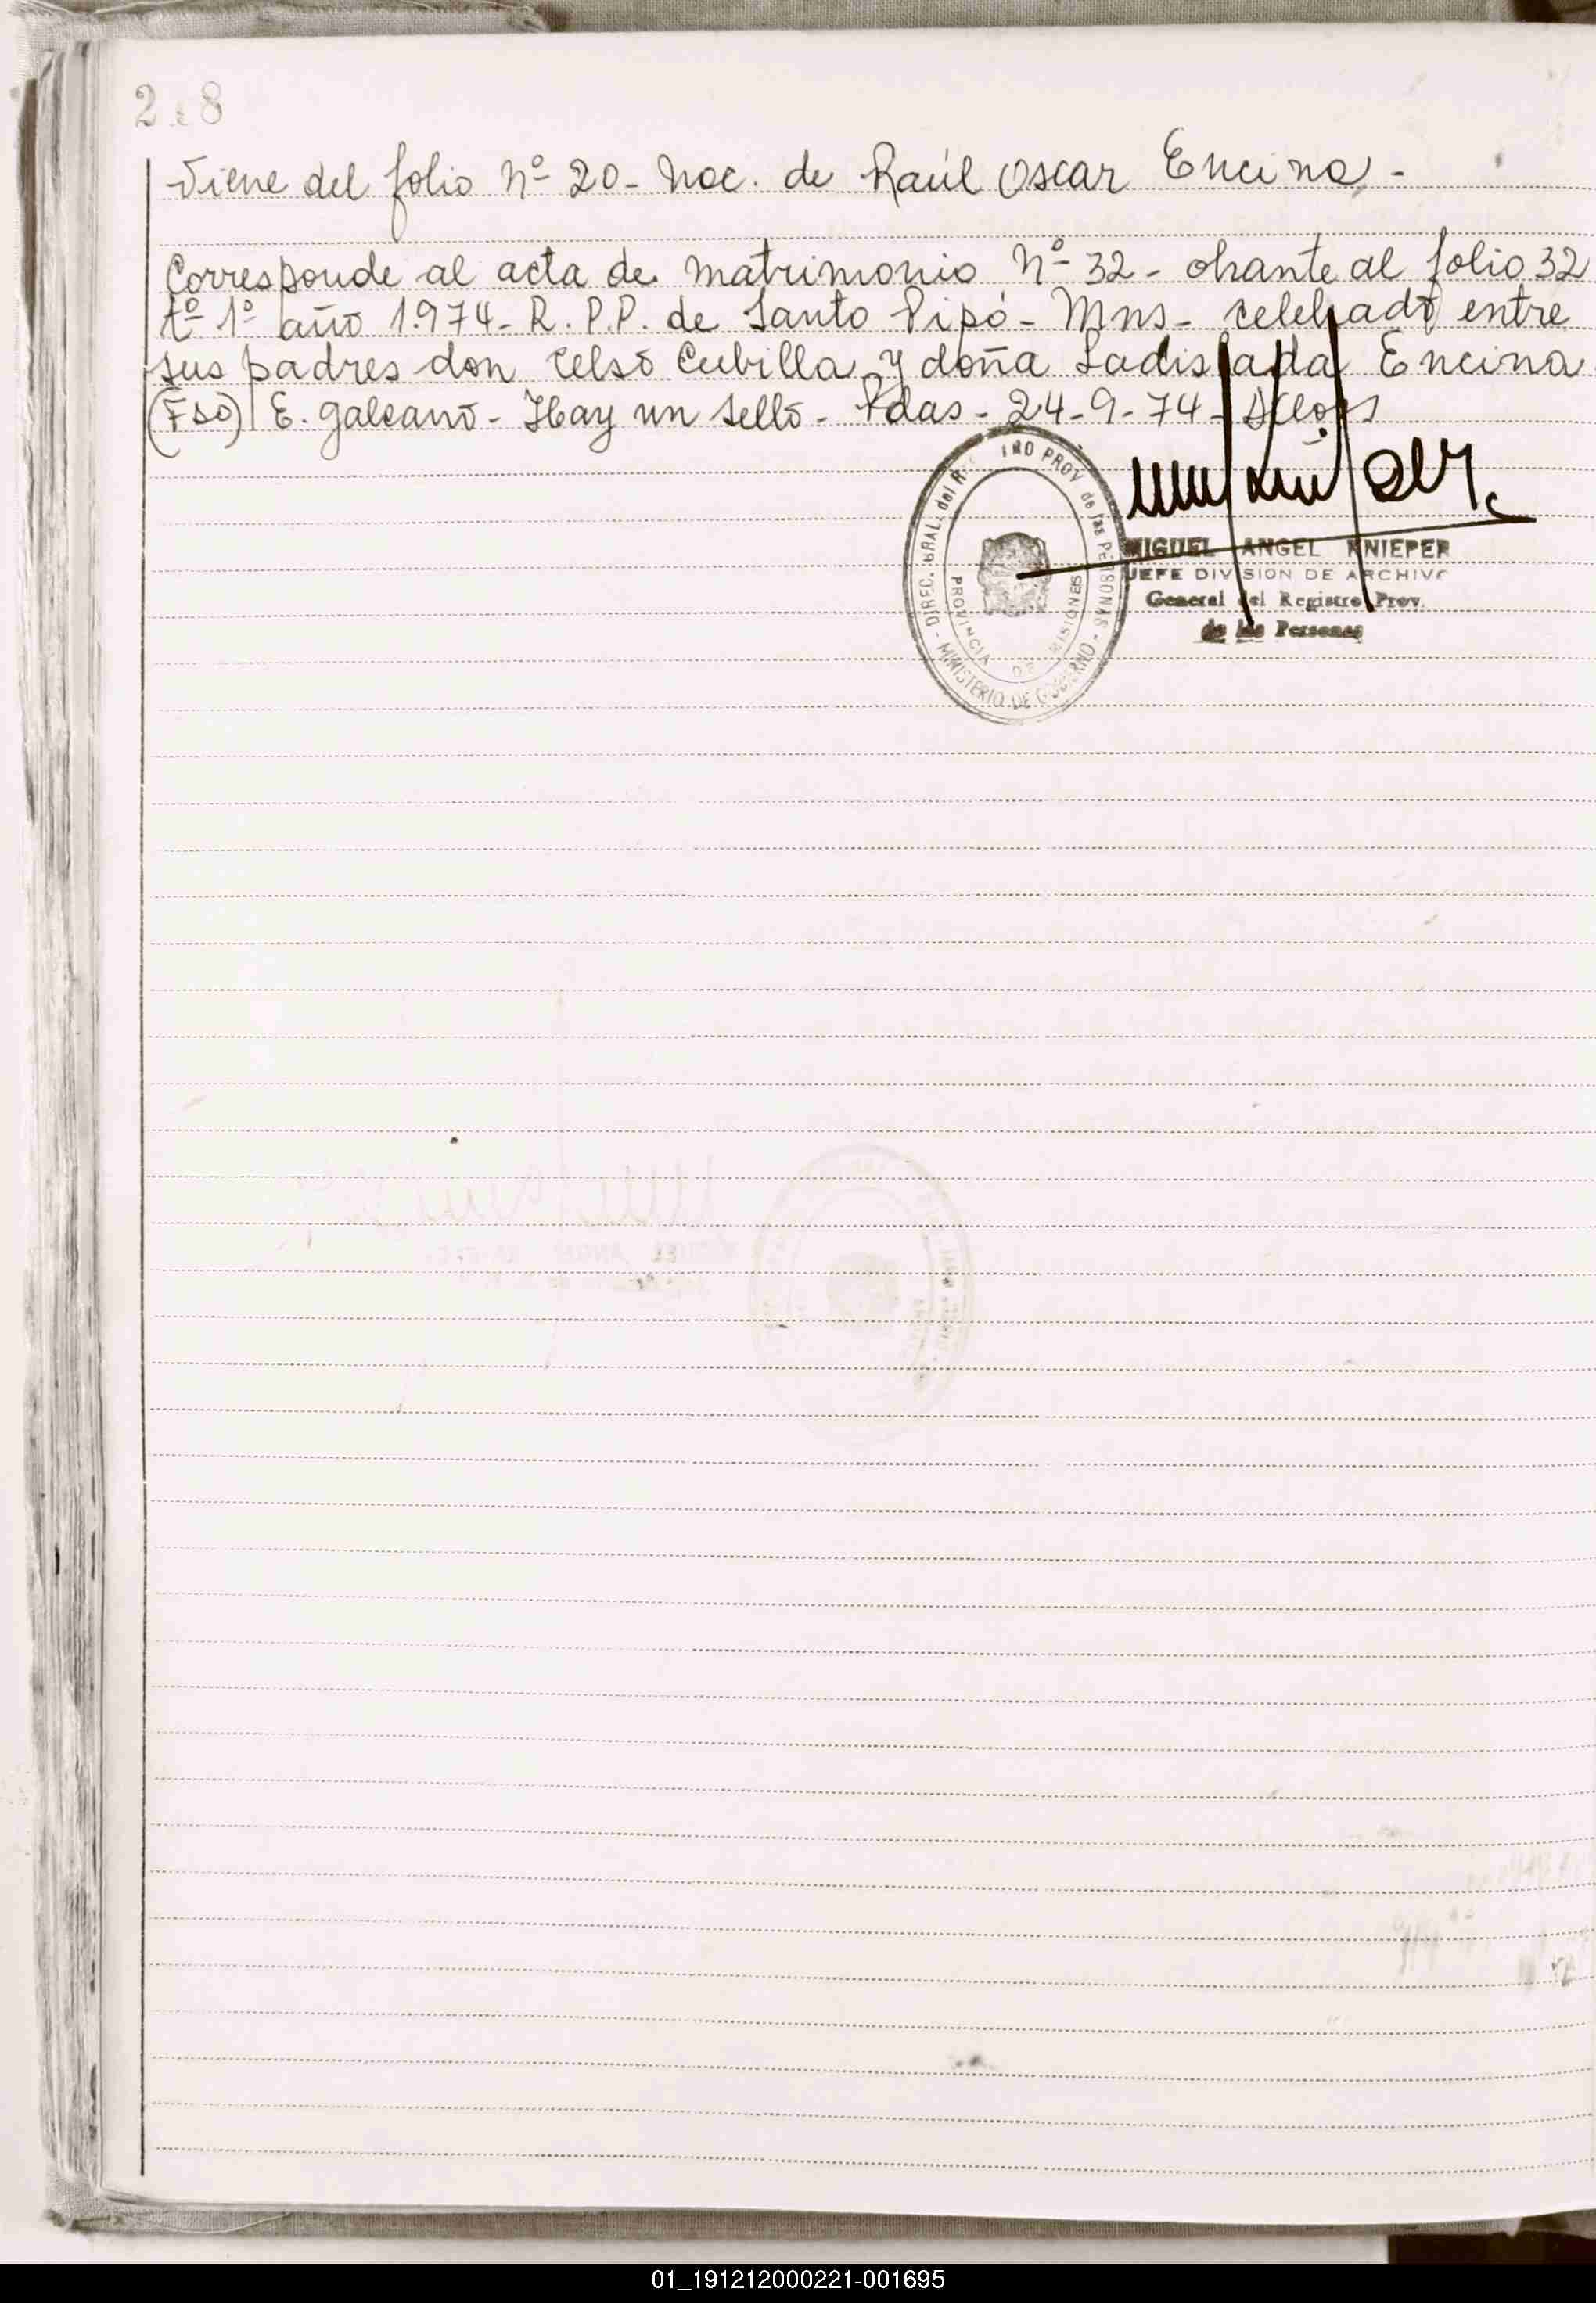 2 8
Viene del folio Nº 20 - Nac. de Raúl Oscar Encina -
Corresponde al acta de matrimonio Nº 32 - obrante al folio 32
tº 1º año 1.974 - R.P.P. de Santo Pipó - Mns - celebrado entre
sus padres don Celso Cubilla y doña Ladislada Encina
(FDO) E. Galeano - Hay un sello - Pdas - 24-9-74 -
DIREC. GRAL. del PROV de las PERSONAS - MINISTERIO DE GOBIERNO -
PROVINCIA DE MISIONES
MIGUEL ANGEL KNIEPER
JEFE DIVISION DE ARCHIVO
General del Registro Prov.
de las Personas
01_191212000221-001695